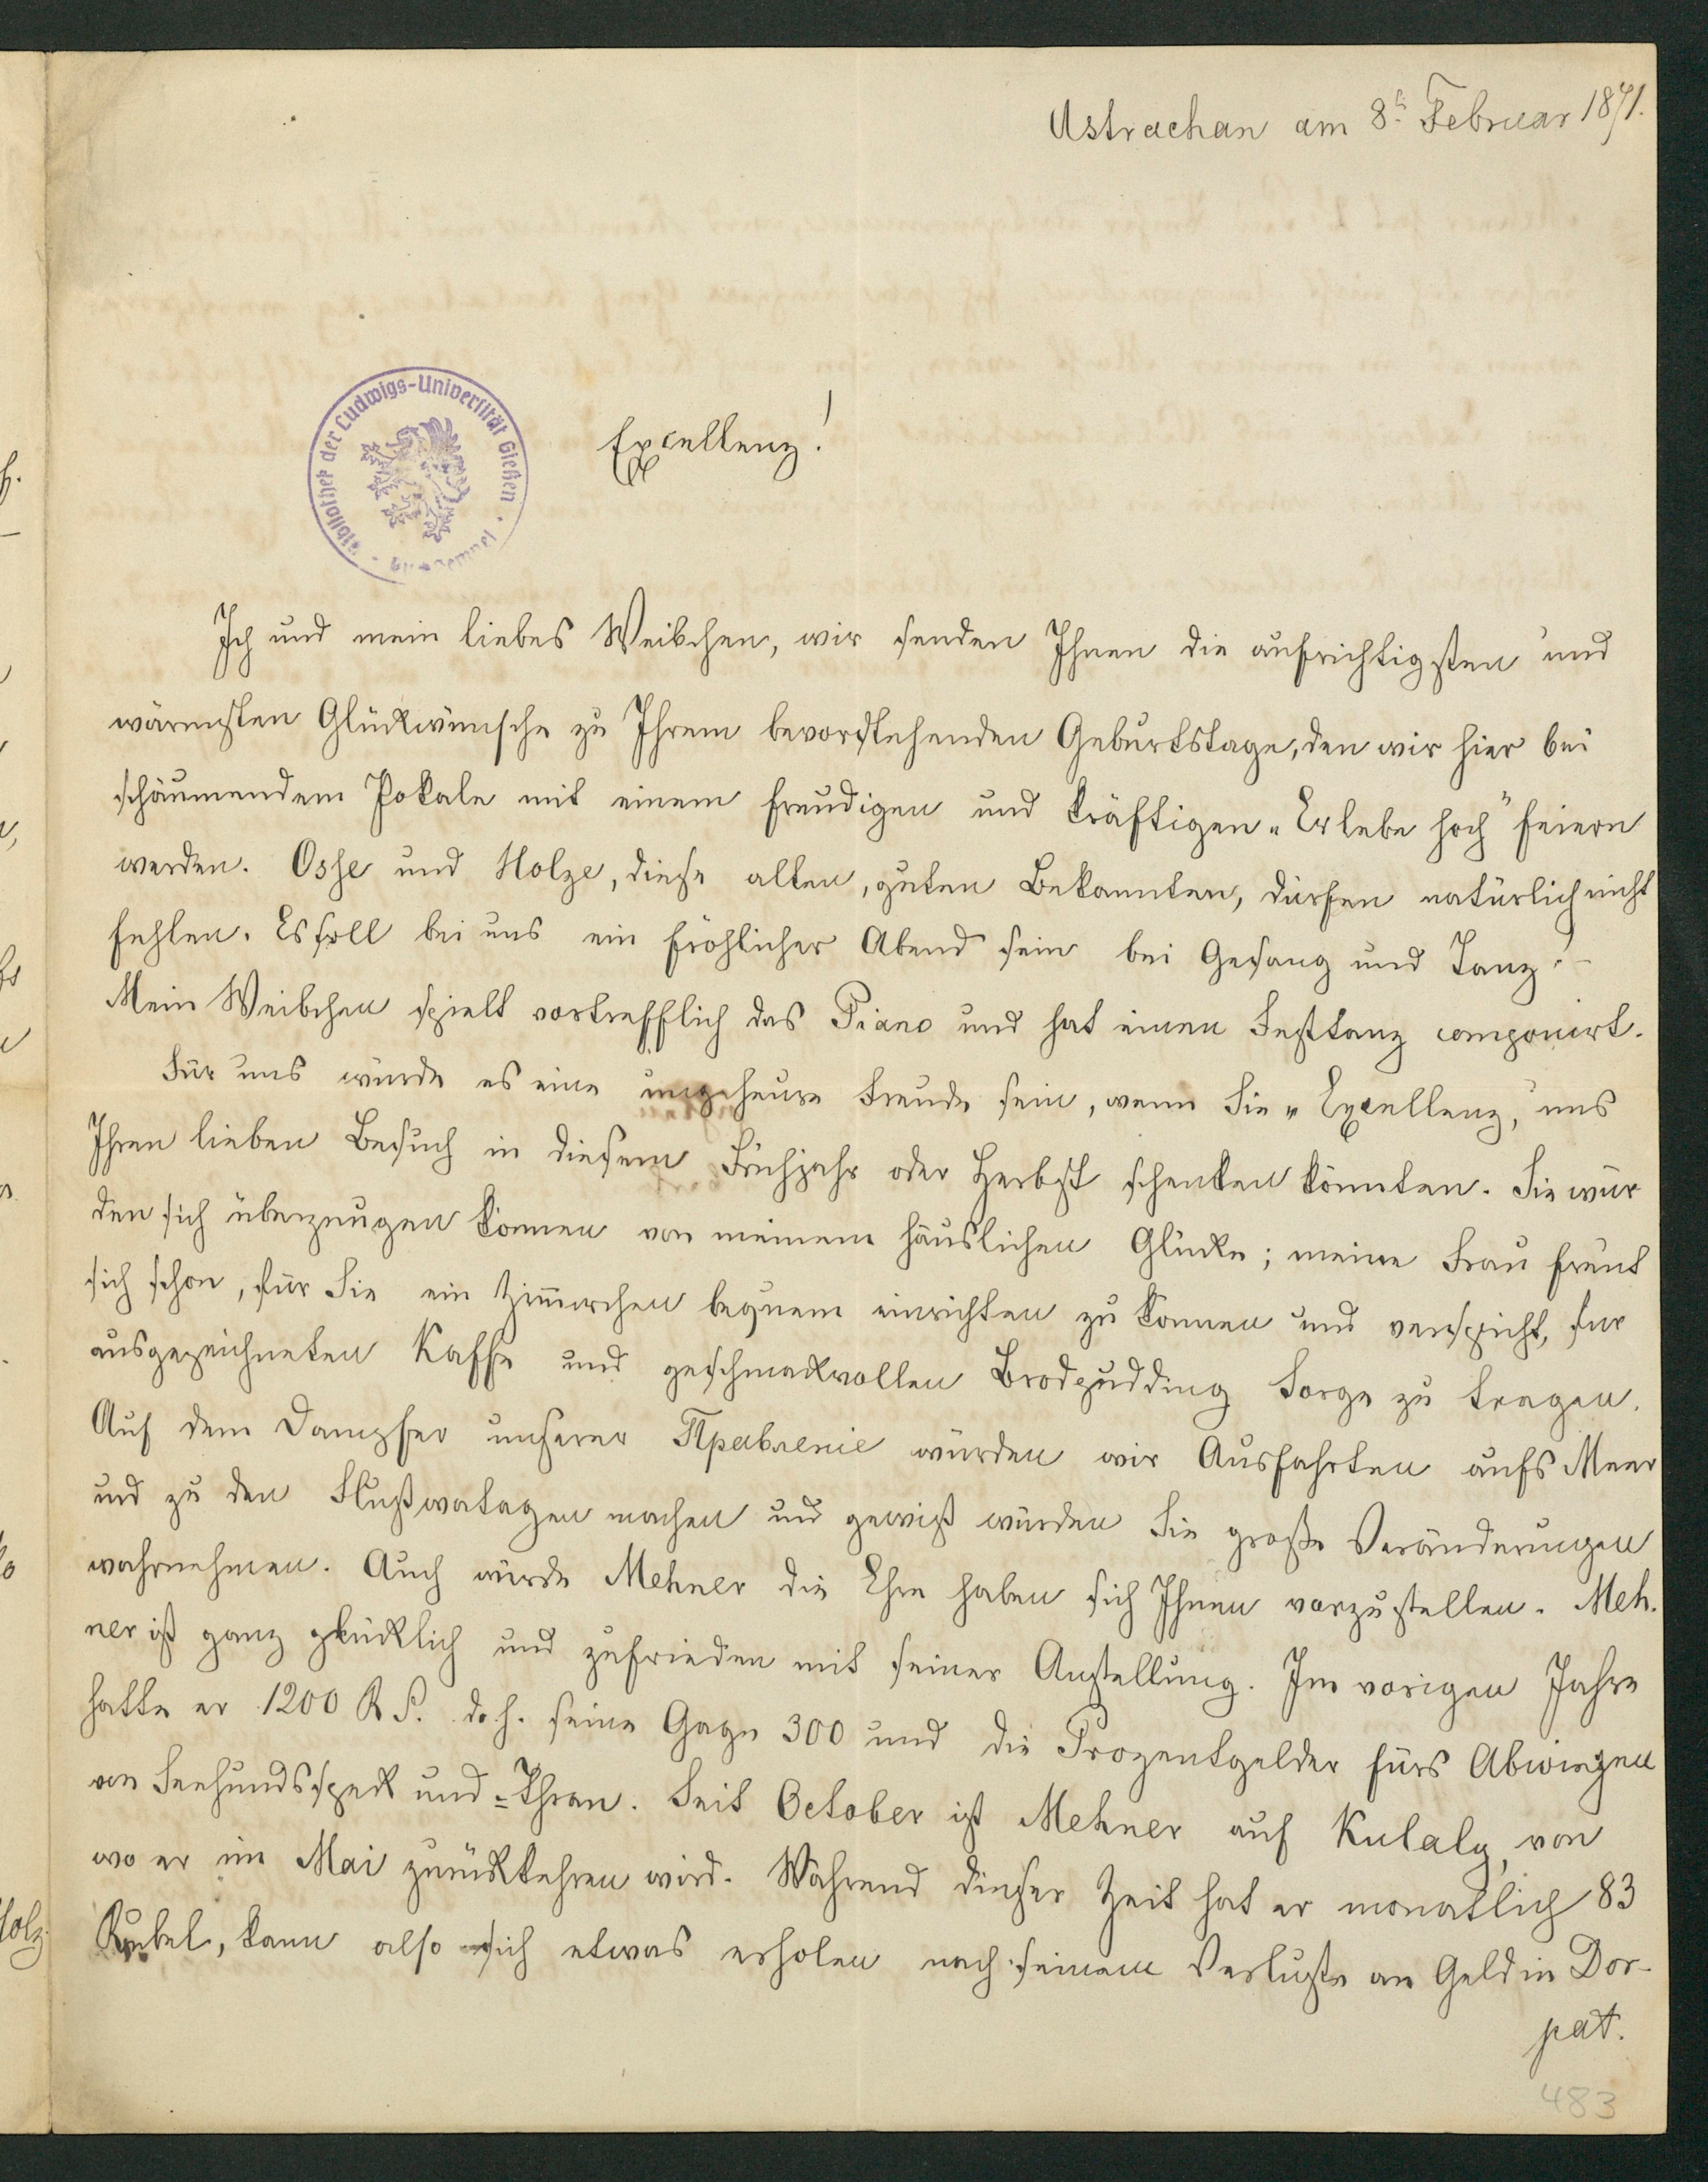 Astrachan am 8t Februar 1871.
Bibliothek der Ludwigs-Universität Gießen
Excellenz!
Ich und mein liebes Weibchen, wir senden Ihnen die aufrichtigsten und
wärmsten Glückwünsche zu Ihrem bevorstehenden Geburtstage, den wir hier bei
schäumendem Pokale mit einem freudigen und kräftigen „Er lebe hoch" feiern
werden. Osse und Holze, diese alten, guten Bekannten, dürfen natürlich nicht
fehlen. Es soll bei uns ein fröhlicher Abend sein bei Gesang und Tanz! –
Mein Weibchen spielt vortrefflich das Piano und hat einen Festtanz componirt.
Für uns würde es eine ungeheure Freude sein, wenn Sie „Excellenz," uns
Ihren lieben Besuch in diesem Frühjahr oder Herbst schenken könnten. Sie wür
den sich überzeugen können von meinem häuslichen Glücke; meine Frau freut
sich schon, für Sie ein Zimmerchen bequem einrichten zu können und verspricht, für
ausgezeichneten Kaffe und geschmackvollen Brodpudding Sorge zu tragen.
Auf dem Dampfer unserer Правленіе würden wir Ausfahrten aufs Meer
und zu den Flußwatagen machen und gewiß würden Sie große Veränderungen
wahrnehmen. Auch würde Mehner die Ehre haben sich Ihnen vorzustellen. Meh-
ner ist ganz glücklich und zufrieden mit seiner Anstellung. Im vorigen Jahre
hatte er 1200 R S. d. h. seine Gage 300 und die Prozentgelder fürs Abwiegen
von Seehundsspeck und =Thran. Seit October ist Mehner auf Kulaly, von
wo er im Mai zurückkehren wird. Während dieser Zeit hat er monatlich 83
Rubel, kann also sich etwas erholen nach seinem Verluste an Geld in Dor-
pat.
483